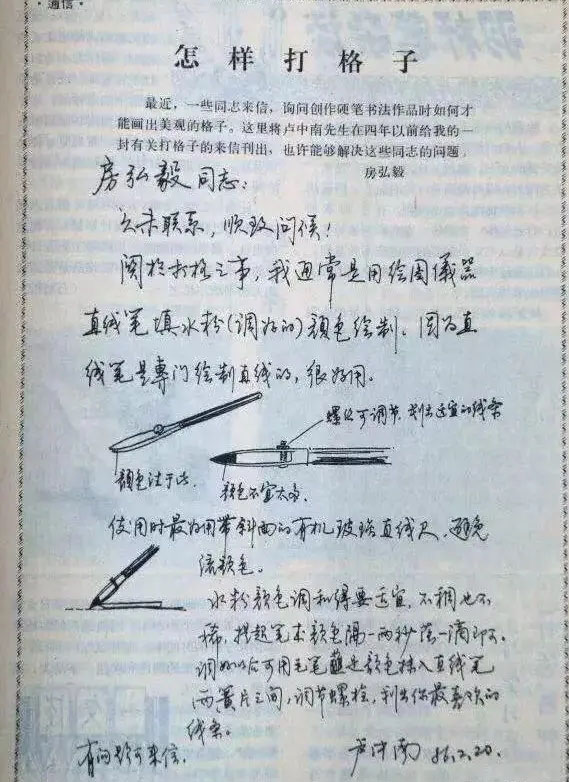 ·通信·
怎样打格子
最近，一些同志来信，询问创作硬笔书法作品时如何才
能画出美观的格子。这里将卢中南先生在四年以前给我的一
封有关打格子的来信刊出，也许能够解决这些同志的问题。
房弘毅
房弘毅同志：
久未联系，顺致问候！
関於打格之事，我通常是用绘图儀器
直线笔填水粉（调好的）颜色绘制。因为直
线笔是專门绘制直线的，很好用。
螺丝可调节，划出适宜的线条
颜色注于此。
颜色不宜太多。
使用时最好用带斜面的有机玻璃直线尺，避免
洇颜色。
水粉颜色调和得要适宜，不稠也不
稀，提起笔来颜色隔一两秒落一滴即可。
调好以后可用毛笔蘸上颜色抹入直线笔
两簧片之间，调节螺栓，划出你最喜欢的
线条。
有问题可来信。
卢中南 86.2.20.